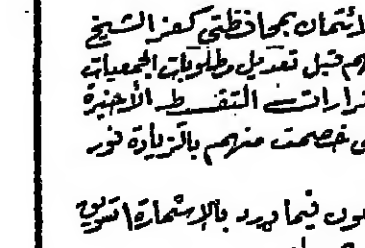 لائتمان بمحافظتي كفر الشيخ
هم قبل تعديل مطلوبات الجمعيات
قرارات التقسيط الأخيرة
ى خصمت منهم بالزيادة فور
ون فيما ورد بالإستمارة ١ تسويق